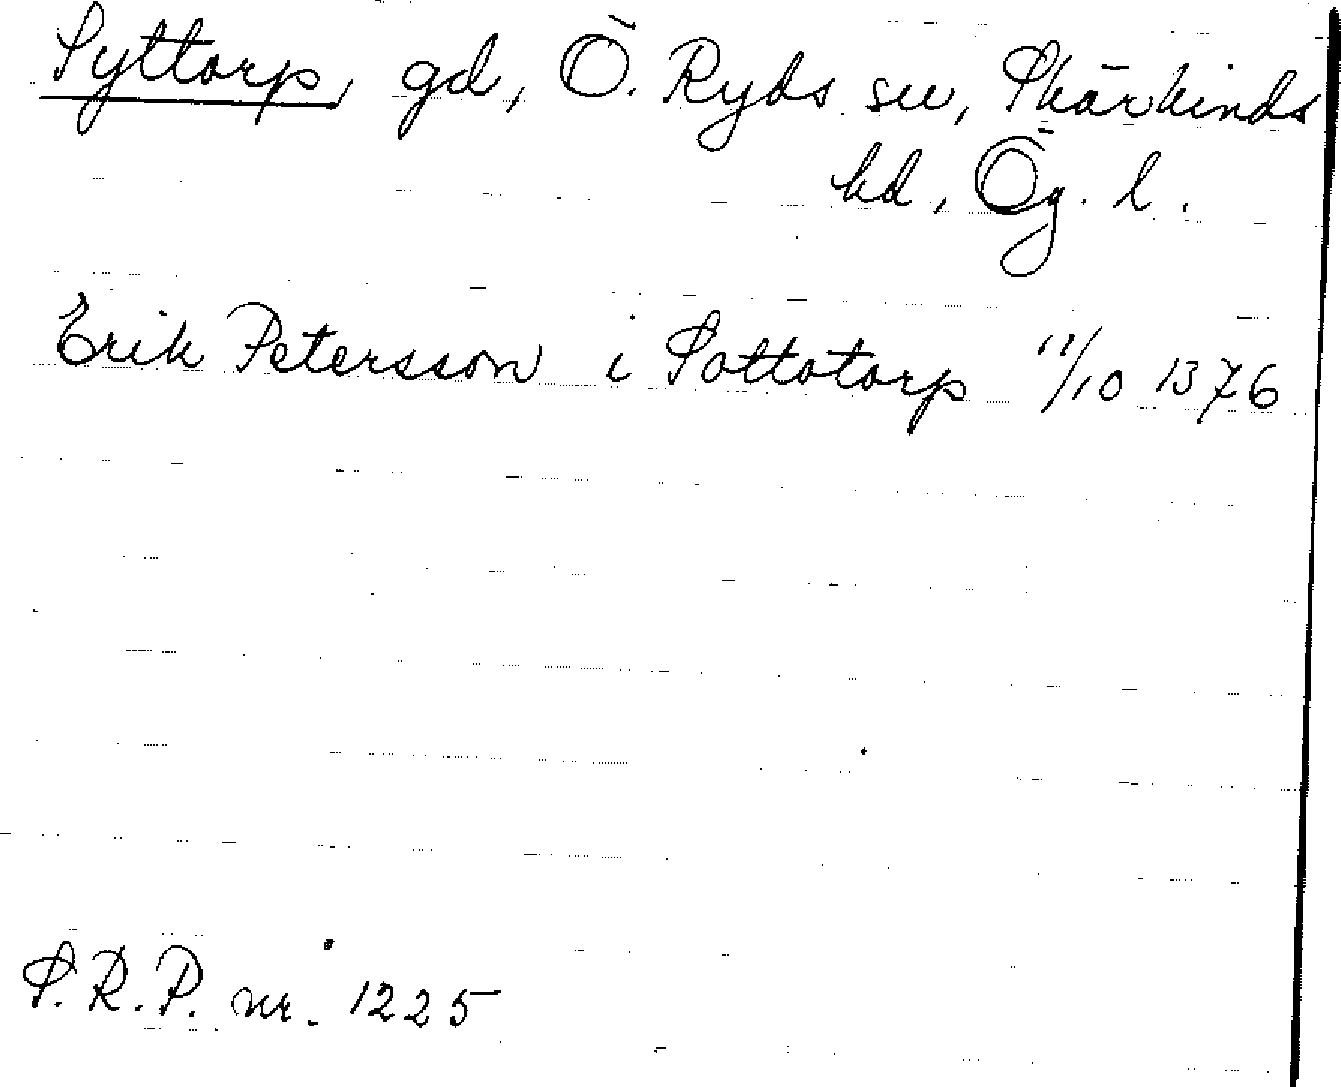 Syttorp, gd, Ö. Ryds sn, Skärkinds
hd, Ög. l.
Erik Petersson i Sottotorp 11/10 1376
S.R.P. nr. 1225